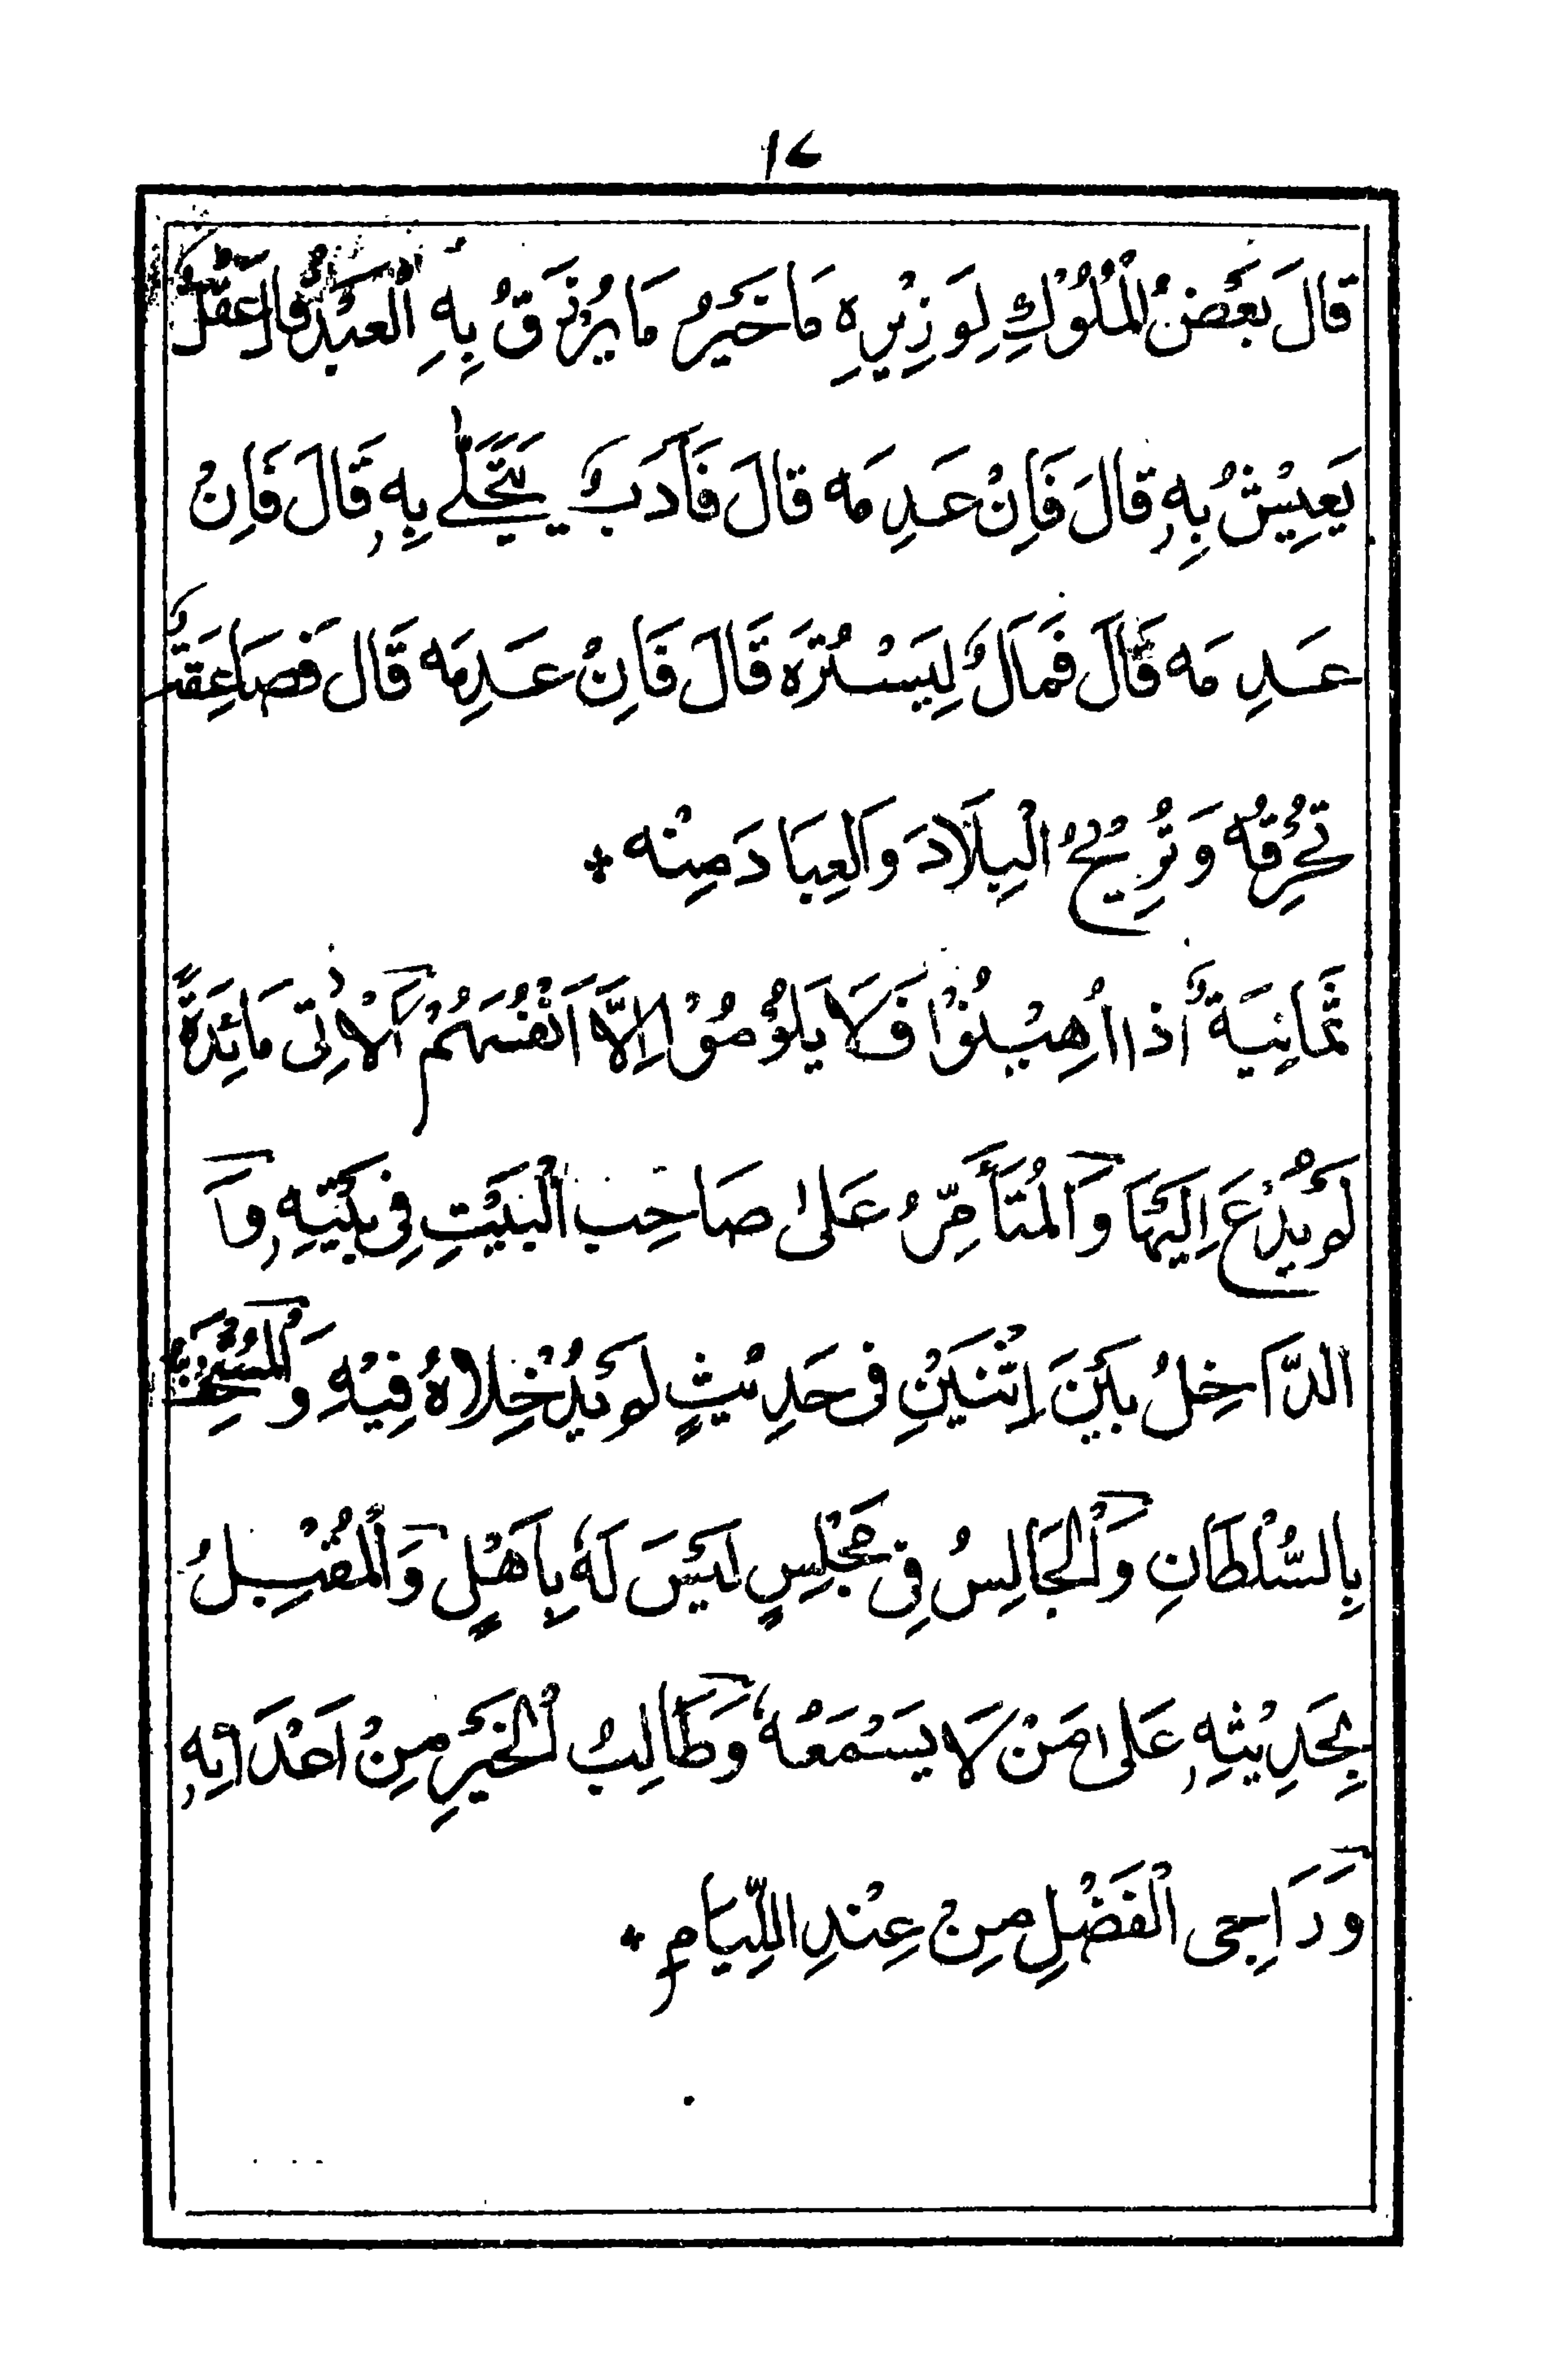 ١٤
قَالَ بَعْضُ الْمُلُوْكِ لِوَزِيْرِهٖ مَا خَيْرُ مَا يُرْزَقُ بِهِ الْعَبْدُ قَالَ عَقْلٌ
يَعِيْشُ بِهٖ قَالَ فَاِنْ عَدِمَه قَالَ فَاَدَبٌ يَتَحَلّٰے بِهٖ قَالَ فَاِنْ
عَدِمَه قَالَ فَمَالٌ لِيَسْتُرَه قَالَ فَاِنْ عَدِمَه قَالَ فَصَاعِقَةٌ
تُحْرِقُهٗ وَتُرِيْحُ الْبِلَادَ وَالْعِبَادَ مِنْه
ثَمَانِيَةٌ اِذَا اُهِيْنُوْا فَلَا يَلُوْمُوْا اِلَّا اَنْفُسَهُمْ اَلْاٰتِى مَائِدَةً
لَمْ يُدْعَ اِلَيْهَا وَالْمُتَأَمِّرُ عَلٰى صَاحِبِ الْبَيْتِ فِى بَيْتِهٖ وَ
الدَّاخِلُ بَيْنَ اِثْنَيْنِ فى حَدِيْثٍ لَمْ يُدْخِلَاهُ فِيْهِ وَالْمُسْتَخِفُّ
بِالسُّلْطَانِ وَالْجَالِسُ فِى مَجْلِسٍ لَيْسَ لَهٗ بِاَهْلٍ وَالْمُقْبِلُ
بِحَدِيْثِهٖ عَلٰى مَنْ لَا يَسْمَعُهٗ وَطَالِبُ الْخَيْرِ مِنْ اَعْدَائِهٖ
وَرَاجِى الْفَضْلِ مِنْ عِنْدِ اللِّيَامِ